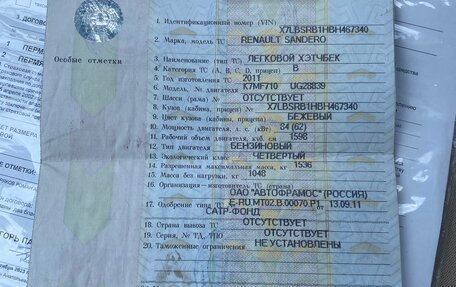 1. Идентификационный номер (VIN) X7LBSRB1HBH467340
2. Марка, модель ТС RENAULT SANDERO
Особые отметки
3. Наименование (тип ТС) ЛЕГКОВОЙ ХЭТЧБЕК
4. Категория ТС (A, B, C, D, прицеп) B
5. Год изготовления ТС 2011
6. Модель, № двигателя K7MF710 UG28839
7. Шасси (рама) № ОТСУТСТВУЕТ
8. Кузов (кабина, прицеп) № X7LBSRB1HBH467340
9. Цвет кузова (кабины, прицепа) БЕЖЕВЫЙ
10. Мощность двигателя, л. с. (кВт) 84 (62)
11. Рабочий объем двигателя, куб. см 1598
12. Тип двигателя БЕНЗИНОВЫЙ
13. Экологический класс ЧЕТВЕРТЫЙ
14. Разрешенная максимальная масса, кг 1536
15. Масса без нагрузки, кг 1048
16. Организация—изготовитель ТС (страна)
ОАО "АВТОФРАМОС" (РОССИЯ)
17. Одобрение типа ТС № E-RU.MT02.B.00070.P1 13.09.11
САТР-ФОНД
18. Страна вывоза ТС ОТСУТСТВУЕТ
19. Серия, № ТД, ТПО ОТСУТСТВУЕТ
20. Таможенные ограничения НЕ УСТАНОВЛЕНЫ